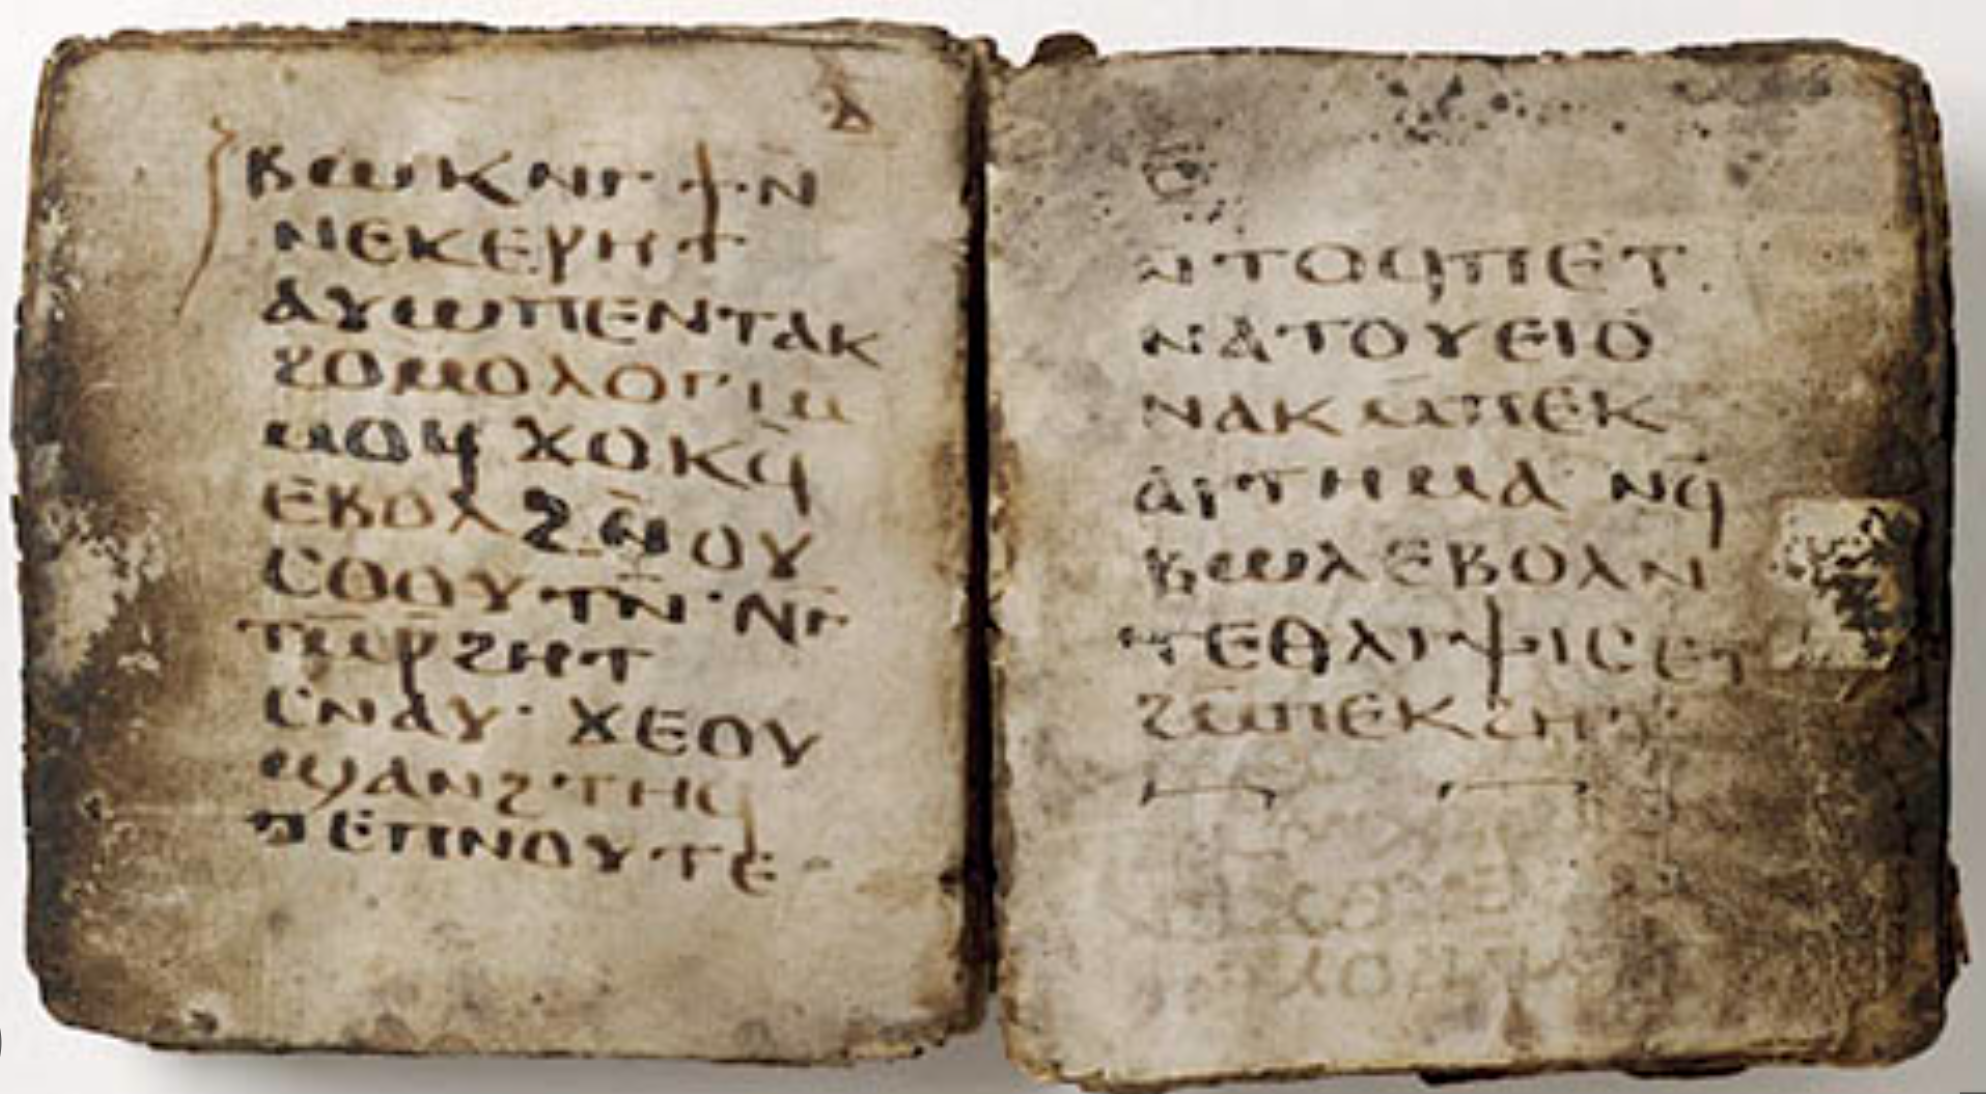 ⲇ
ⲃⲱⲕⲛⲅ·ϯ·ⲛ̄
ⲛⲉⲕⲉⲣⲏⲧ
ⲁⲩⲱⲡⲉⲛⲧⲁⲕ
ϩⲟⲙⲟⲗⲟⲅⲓⲙ
ⲙⲟϥ ϫⲟⲕϥ̄
ⲉⲃⲟⲗϩⲛ̄ⲟⲩ
ⲥⲟⲟⲩⲧⲛ̄·ⲛⲅ̄
ⲧⲙ̄ⲣ̄ϩⲏⲧ
ⲥⲛⲁⲩ· ϫⲉⲟⲩ
ϣⲁⲛϩⲧⲏϥ
ⲡⲉⲡⲛⲟⲩⲧⲉ
ⲉ
ⲛⲧⲟϥⲡⲉⲧ
ⲛⲁⲧⲟⲩⲉⲓⲟ
ⲛⲁⲕⲙ̄ⲡⲉⲕ
ⲁⲓⲧⲏⲙⲁ· ⲛϥ̄
ⲃⲱⲗⲉⲃⲟⲗⲛ
ⲧⲉⲑⲗⲓⲯⲓⲥⲉⲧ
ϩⲙ̄ⲡⲉⲕϩⲏⲧ·